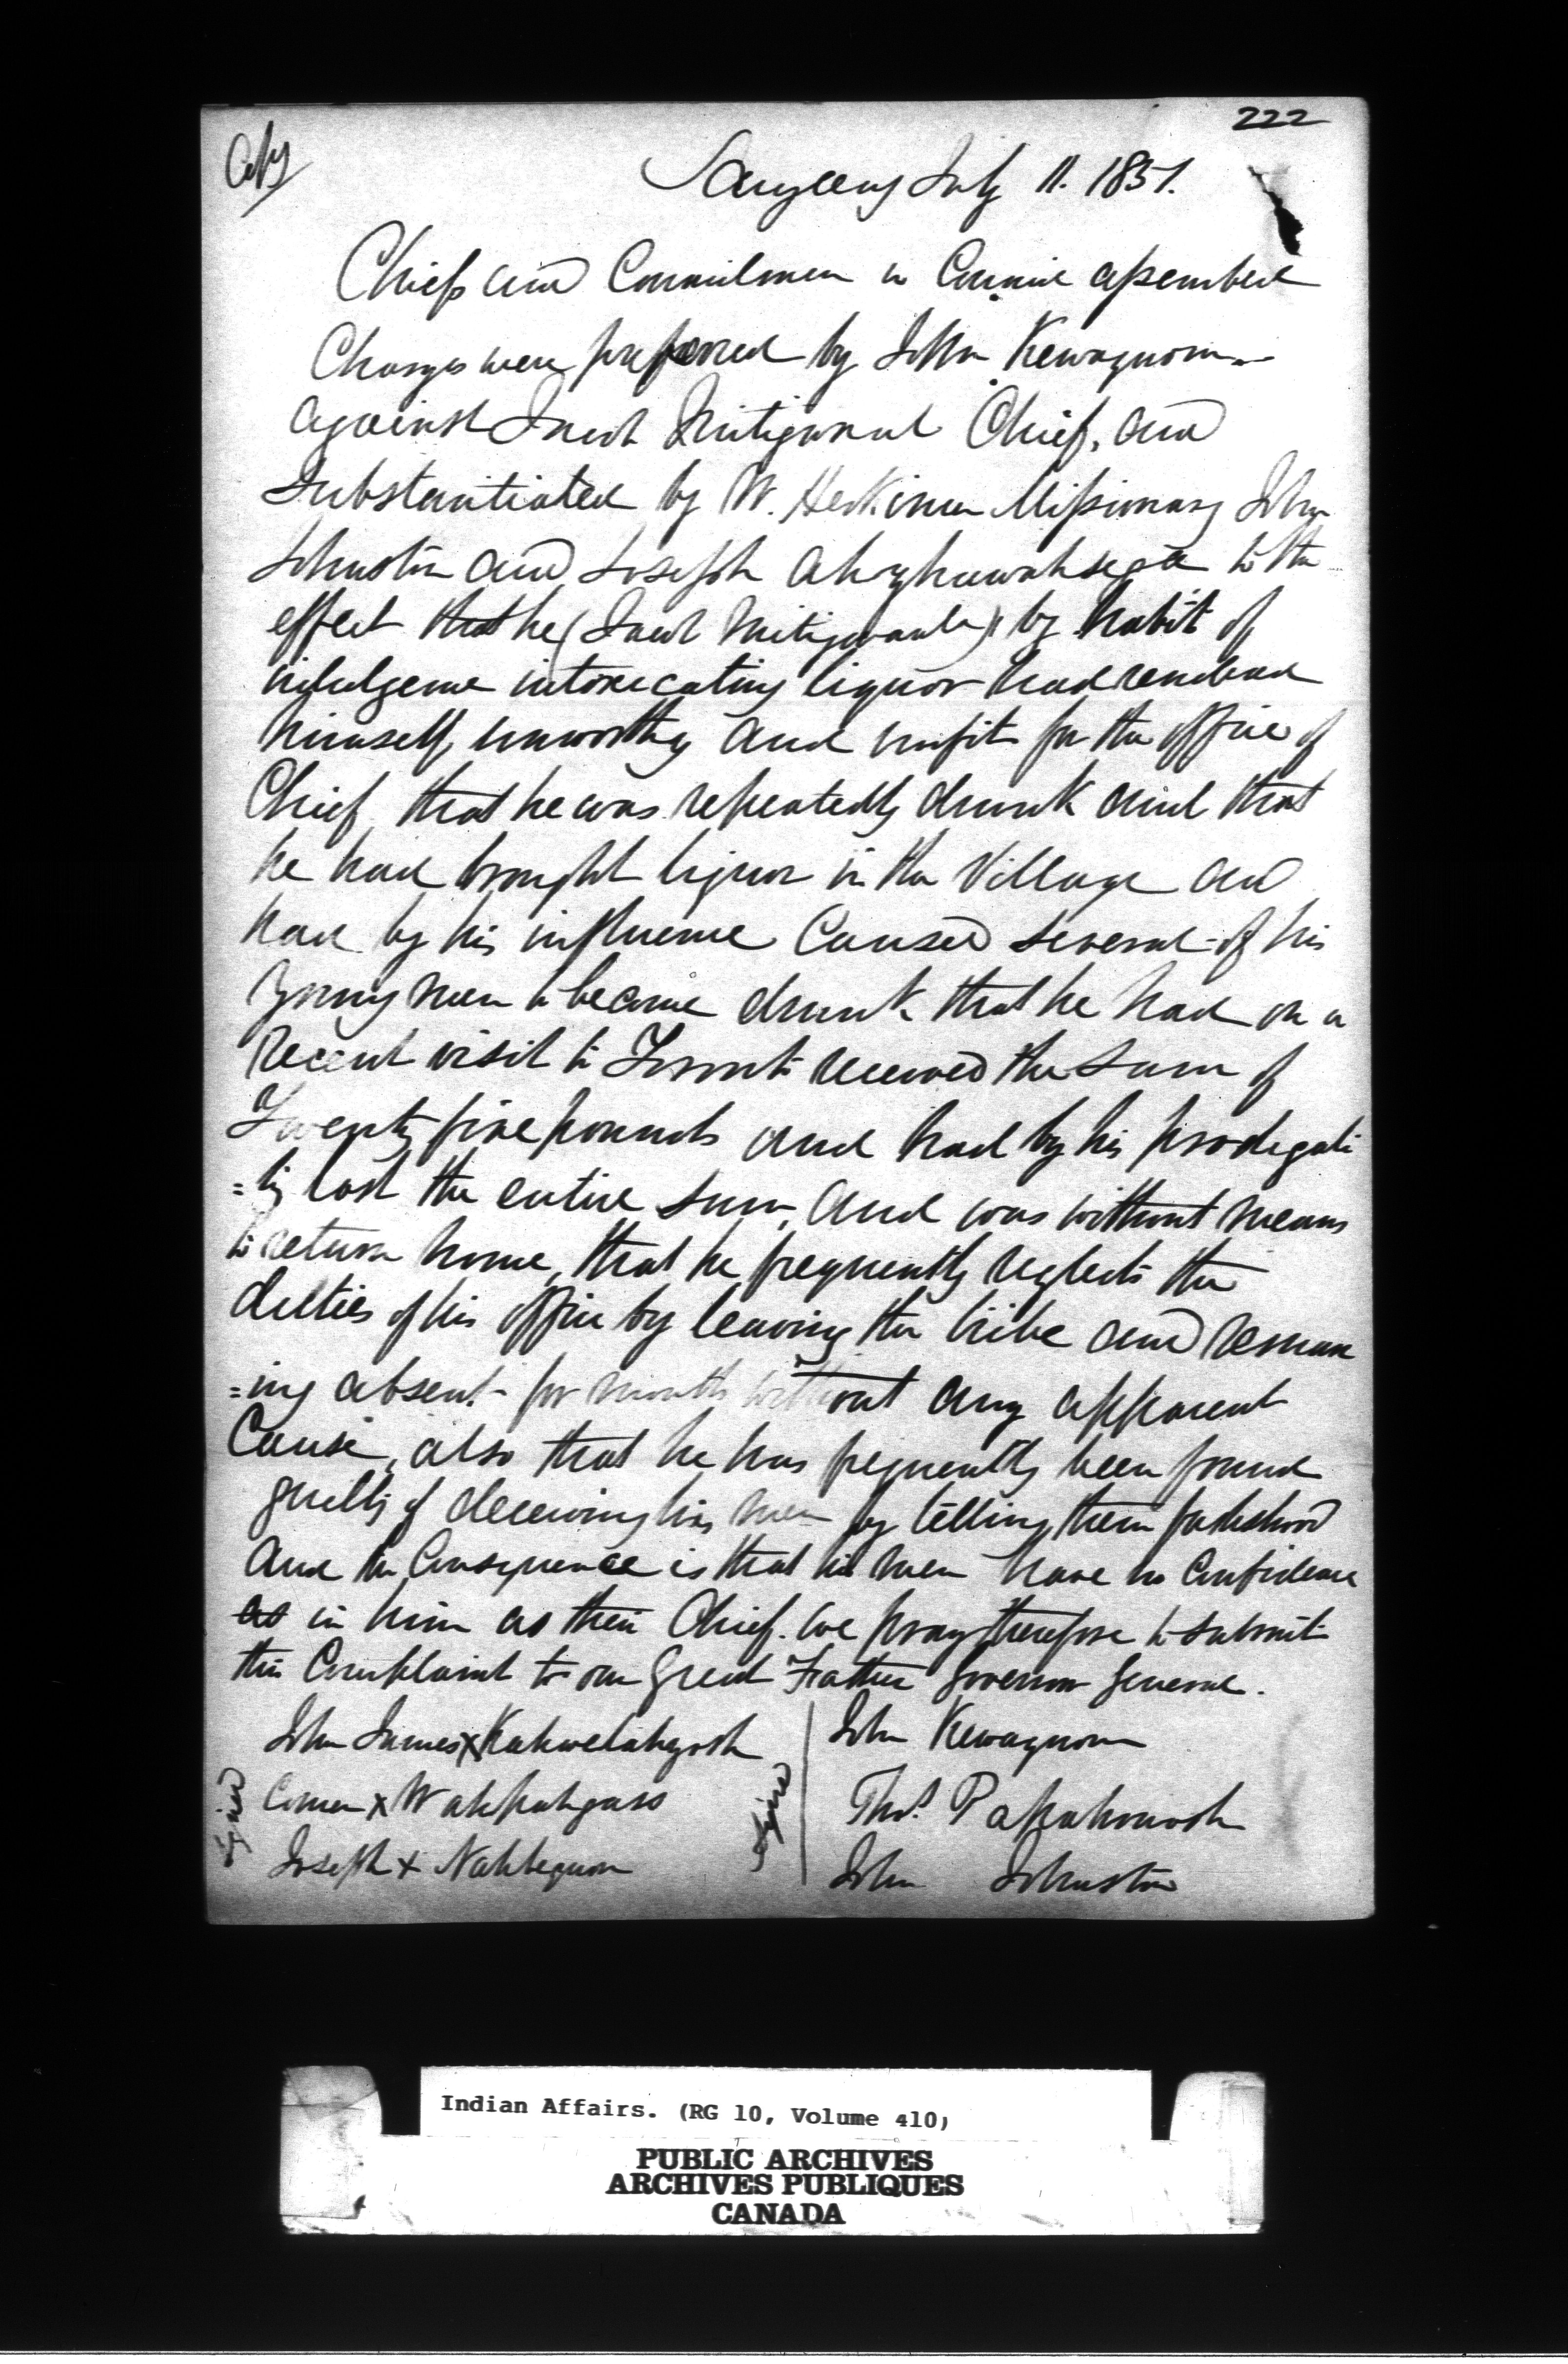 222
Copy
Saugeeng July 11. 1851.
Chiefs and Councilmen in Council assembled
Charges were preferred by John Kewaquom
against Jacob Mitigwaub Chief, and
Substantiated by W. Herkimer Missionary John
Johnston and Joseph to the
effect that he (Jacob Mitigwaub) by habit of
indulgence intoxicating liquor had rendered
himself unworthy and unfit for the office of
Chief that he was repeatedly drunk and that
he had brought liquor in the Village and
had by his influence Caused several of his
Young men to become drunk that he had on a
recent visit to Toronto received the Sum of
Twenty five pounds and had by his prodegali
=ty lost the entire sum, and was without means
to return home, that he frequently neglects the
duties of his office by leaving the tribe and remain
=ing absent for months without any apparent
Cause, also that he has frequently been found
guilty of deceiving his men by telling them falsehood
and the Consequence is that his men have no Confidence
as in him as their Chief. We pray therefore to submit
this Complaint to our Great Father Governor General.
Signed
John James x Kahwetahgosh
Comer x Wahpahgass
Joseph x Nahbequon
Signed
John Kewaquom
Thos. Papahmosh
John Johnston
Indian Affairs. (RG 10, Volume 410)
PUBLIC ARCHIVES
ARCHIVES PUBLIQUES
CANADA